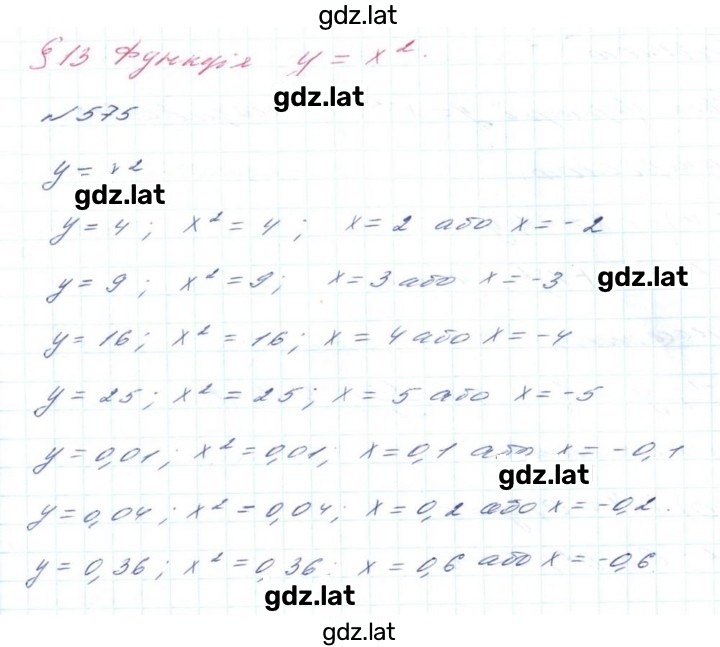 gdz.lat
§ 13 Функція y = x².
gdz.lat
№ 575
y = x²
gdz.lat
y = 4 ; x² = 4 ; x = 2 або x = -2
y = 9 ; x² = 9; x = 3 або x = -3
gdz.lat
y = 16; x² = 16; x = 4 або x = -4
y = 25; x² = 25; x = 5 або x = -5
y = 0,01; x² = 0,01; x = 0,1 або x = -0,1
gdz.lat
y = 0,04; x² = 0,04; x = 0,2 або x = -0,2.
y = 0,36; x² = 0,36; x = 0,6 або x = -0,6
gdz.lat
gdz.lat